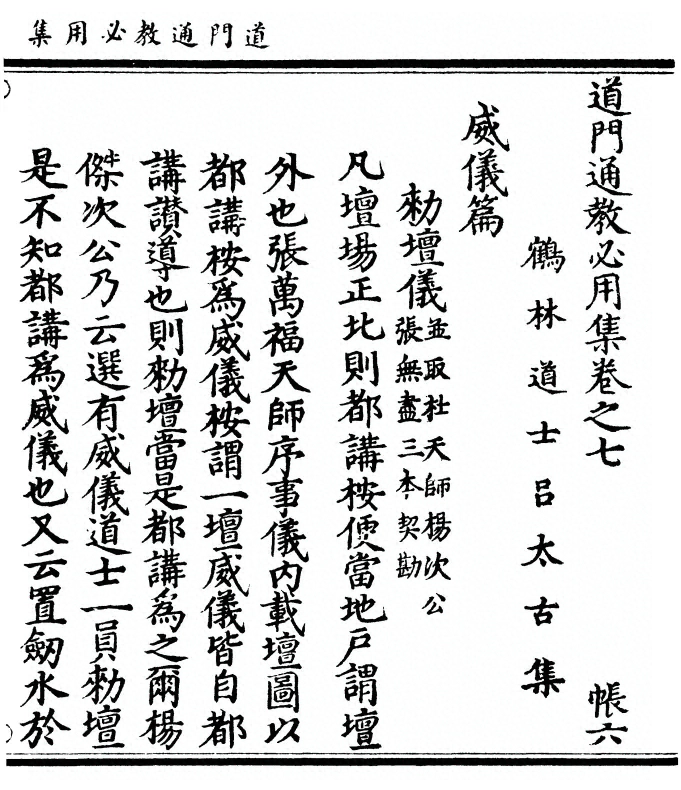 道門通教必用集
道門通教必用集卷之七　帳六
鶴林道士呂太古集
威儀篇
勑壇儀並取杜天師楊次公張無盡三本契勘
凡壇場正北則都講桉便當地戶謂壇
外也張萬福天師序事儀內載壇圖以
都講桉爲威儀桉謂一壇威儀皆自都
講讃導也則勑壇當是都講爲之爾楊
傑次公乃云選有威儀道士一員勑壇
是不知都講爲威儀也又云置劒水於